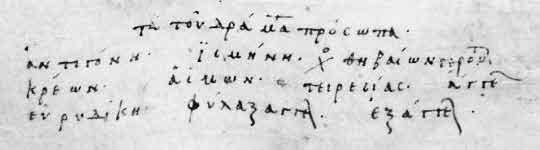 τὰ τοῦ δράματ πρόσωπα.
ἀντιγόνη. ἰσμήνη. χο θηβαίων γερόντ
κρέων. αἵμων. τειρεσίας. ἄγγε
εὐρυδίκη. φύλαξ ἄγγελ ἐξάγγελ